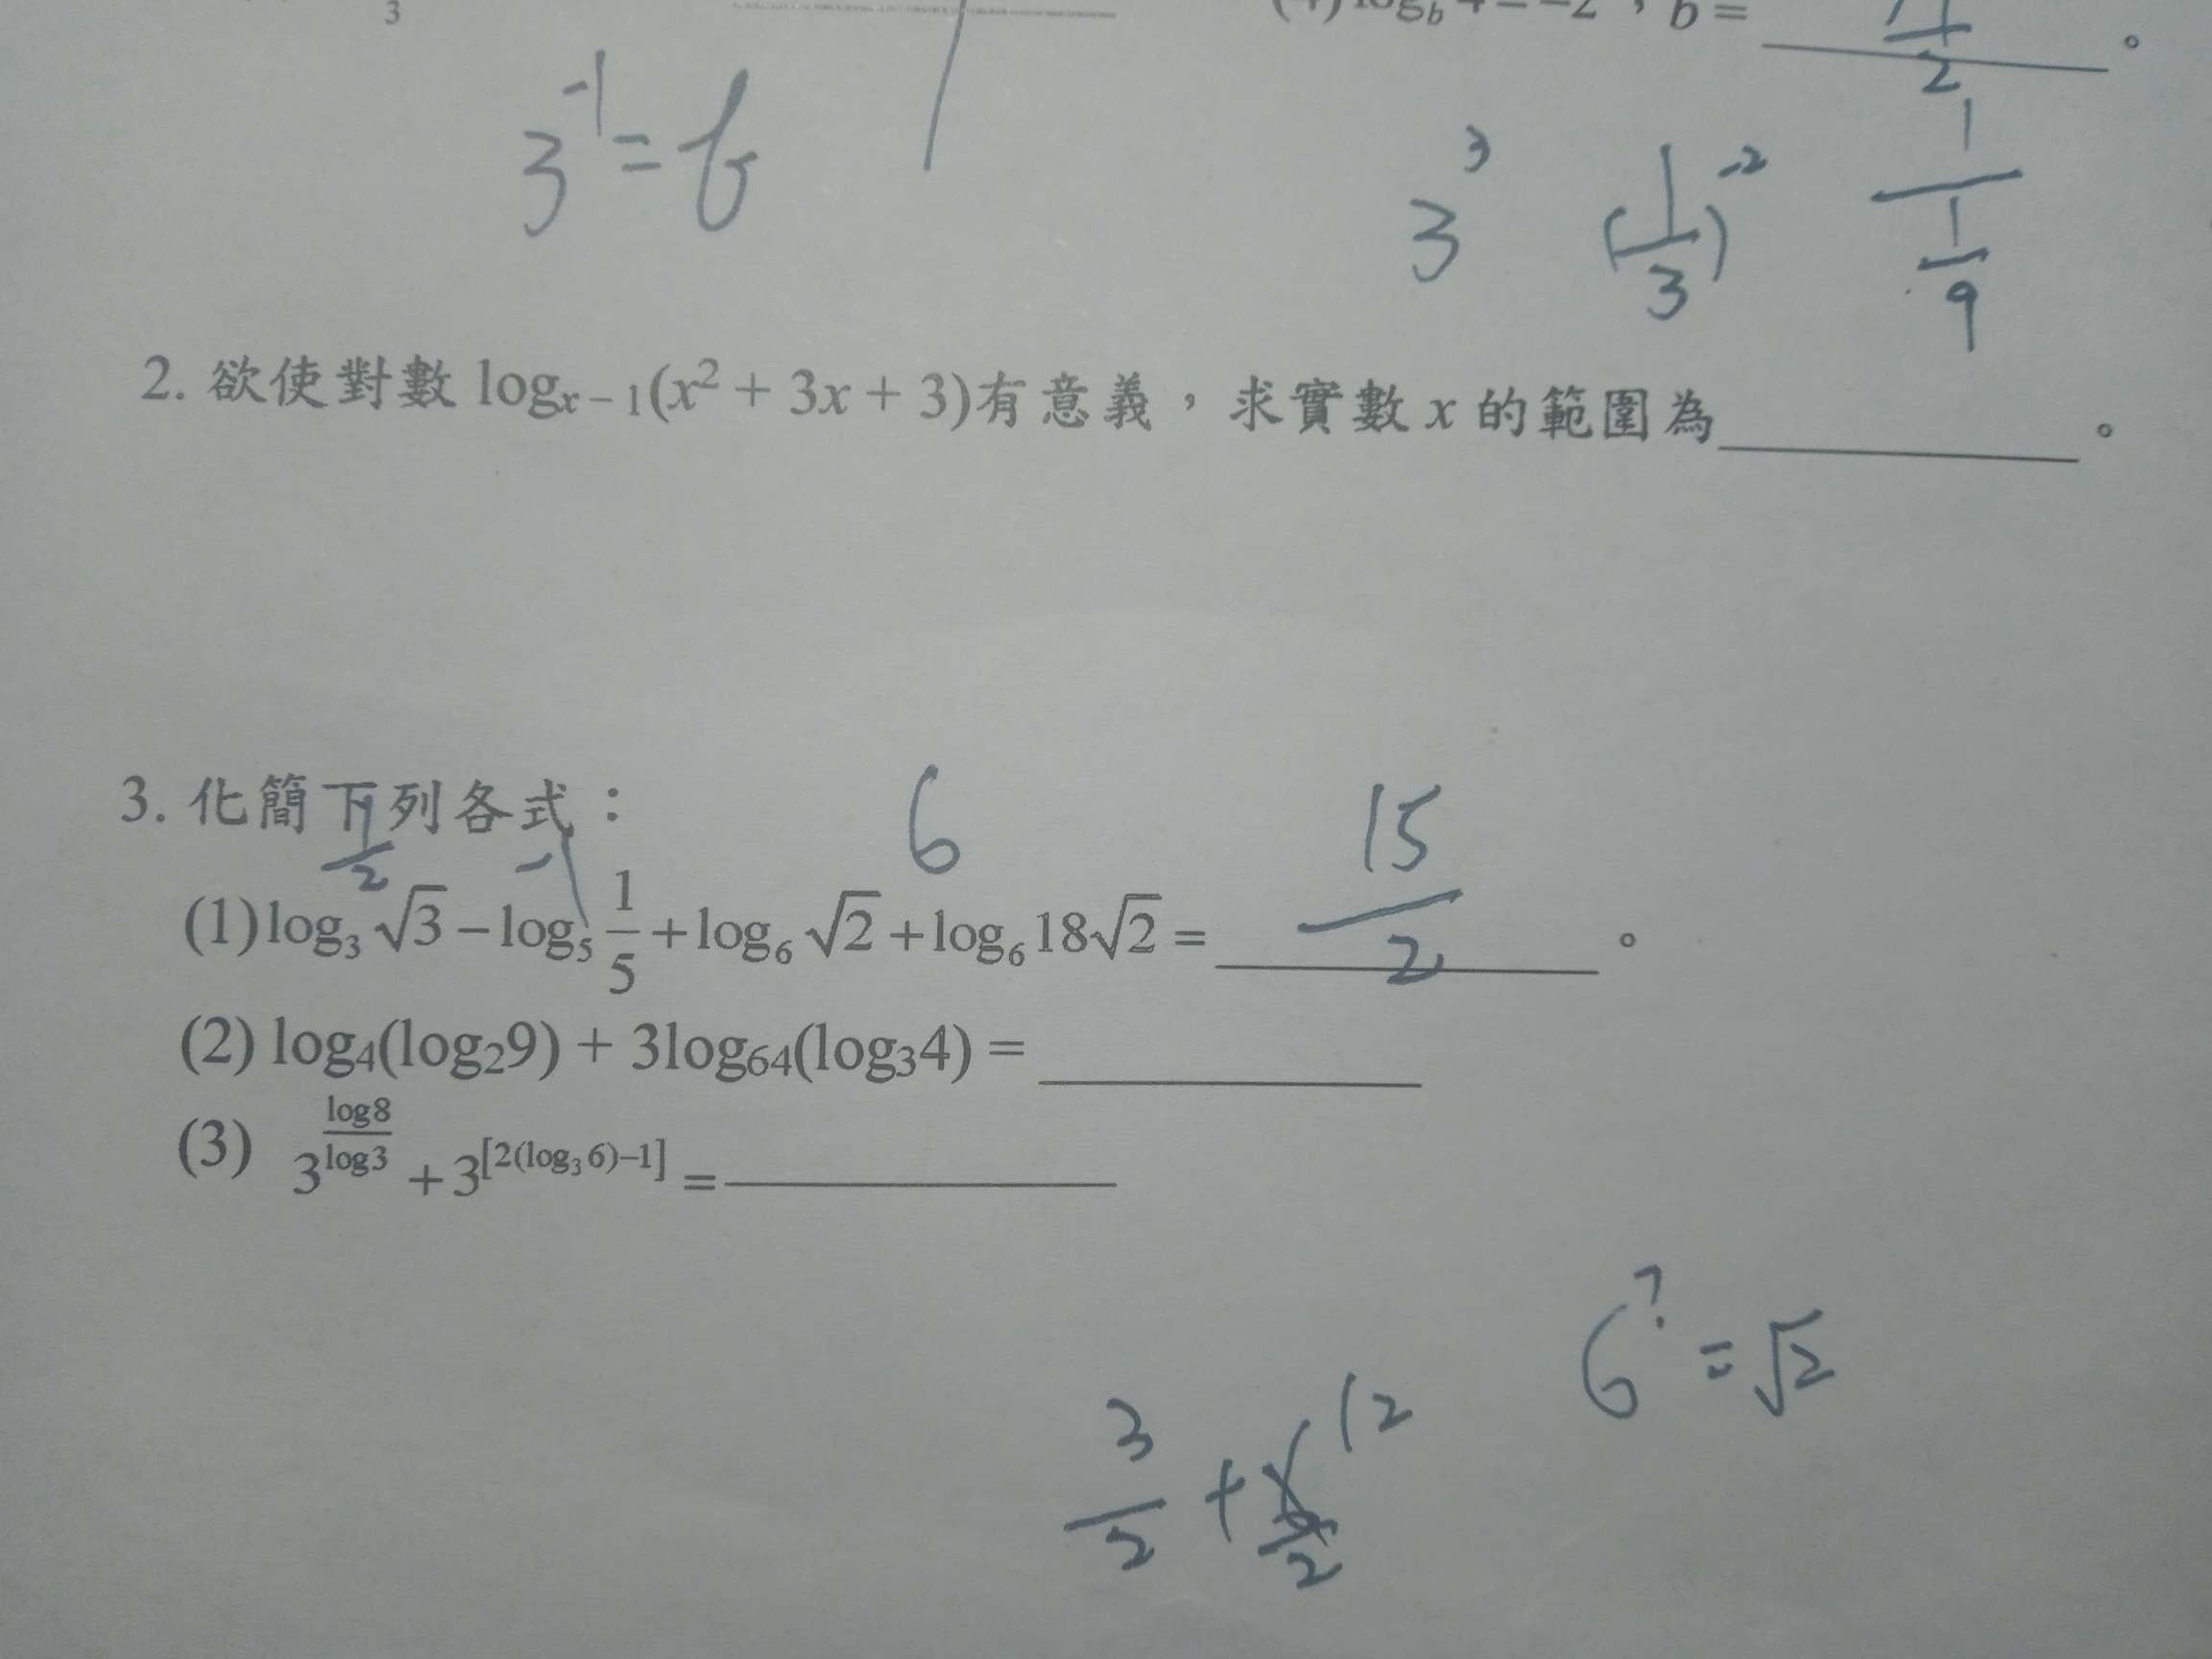 3
b =
1/2 。
3⁻¹ = b
3³ (1/3)⁻² 1/(1/9)
2. 欲使對數 logₓ₋₁(x² + 3x + 3)有意義，求實數 x 的範圍為________。
3. 化簡下列各式：
1/2 -1 6 15/2
(1) log₃ √3 − log₅ 1/5 + log₆ √2 + log₆ 18√2 = ________。
(2) log₄(log₂9) + 3log₆₄(log₃4) = ________
(3) 3^(log8/log3) + 3^[2(log₃6)−1] = ________
6^? = √2
3/2 + 12/2